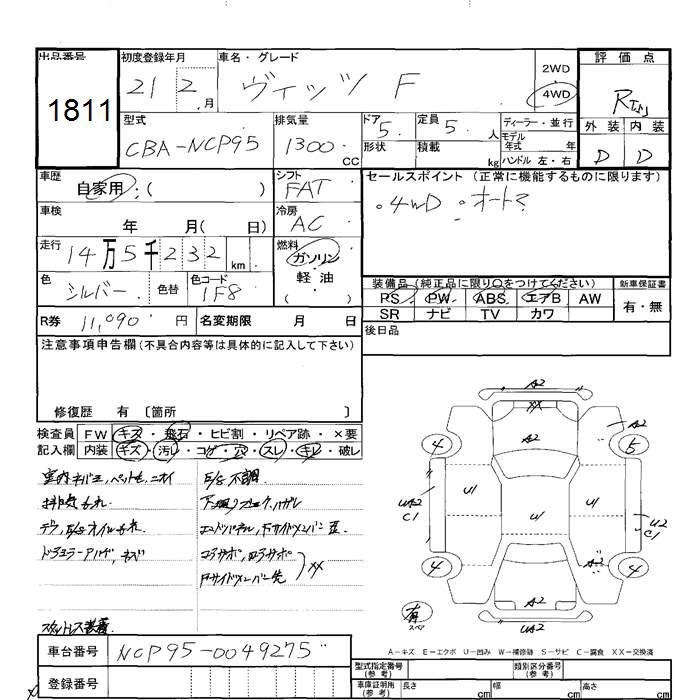 出品番号 初度登録年月 車名・グレード 2WD 評価点
1811 21 2.月 ヴィッツ F 4WD R
型式 排気量 ドア 5. 定員 5. 人 ディーラー・並行 外装 内装
CBA-NCP95 1300 cc 形状 積載 kg モデル年式 年 D D
ハンドル 左・右
車歴 シフト セールスポイント (正常に機能するものに限ります)
自家用 :( ) FAT 。4WD 。オート?
車検 年 月( 日) 冷房 AC
走行 14万5千232 km 燃料 ガソリン
色 シルバー 色替 色コード 1F8 軽油 ( )
装備品(純正品に限り○をつけてください) 新車保証書
PS PW ABS エアB AW 有・無
SR ナビ TV カワ
R券 11,090 円 名変期限 月 日 後日品
注意事項申告欄(不具合内容等は具体的に記入して下さい)
修復歴 有 〔箇所 〕
検査員 FW キズ・飛石・ヒビ割・リペア跡・×要
記入欄 内装 キズ・汚レ・コゲ・穴・スレ・キレ・破レ
室内キバミ,ペット毛,ニオイ E/G不調
排気もれ
デフ,E/Gオイルもれ
コアサポ,
XX
スタットレス装着
A2
XX
A2
4 5
A2
U2 C1 U1 U1 U1 U2 C1
A2
4 4
A2
有 スペア A2
U2
A-キズ E-エクボ U-凹み W-補修跡 S-サビ C-腐食 XX-交換済
車台番号 NCP95-0049275
登録番号
型式指定番号(参考) 類別区分番号(参考)
車庫証明用(参考) 長さ cm 幅 cm 高さ cm